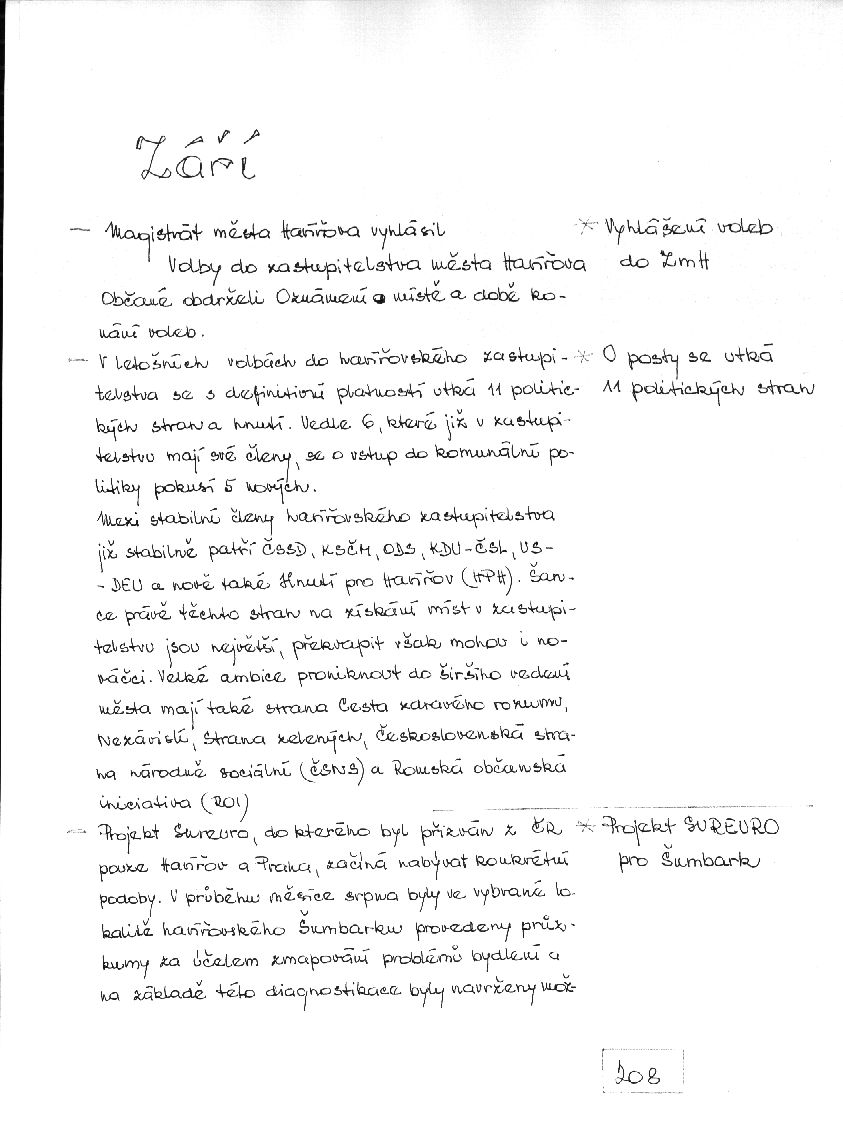 Září
— Magistrát města Havířova vyhlásil
Volby do zastupitelstva města Havířova
Občané obdrželi Oznámení o místě a době ko-
nání voleb.
* Vyhlášení voleb
do ZmH
— V letošních volbách do havířovského zastupi-
telstva se s definitivní platností utká 11 politic-
kých stran a hnutí. Vedle 6, které již v zastupi-
telstvu mají své členy, se o vstup do komunální po-
litiky pokusí 5 nových.
Mezi stabilní členy havířovského zastupitelstva
již stabilně patří ČSSD, KSČM, ODS, KDU-ČSL, US-
- DEU a nově také Hnutí pro Havířov (HPH). Šan-
ce právě těchto stran na získání míst v zastupi-
telstvu jsou největší, překvapit však mohou i no-
váčci. Velké ambice proniknout do širšího vedení
města mají také strana Cesta zdravého rozumu,
Nezávislí, Strana zelených, Československá stra-
na národně sociální (ČSNS) a Romská občanská
iniciativa (ROI)
* O posty se utká
11 politických stran
— Projekt Sureuro, do kterého byl přizván z ČR
pouze Havířov a Praha, začíná nabývat konkrétní
podoby. V průběhu měsíce srpna byly ve vybrané lo-
kalitě havířovského Šumbarku provedeny průz-
kumy za účelem zmapování problémů bydlení a
na základě této diagnostikace byly navrženy mož-
* Projekt SUREURO
pro Šumbark
208